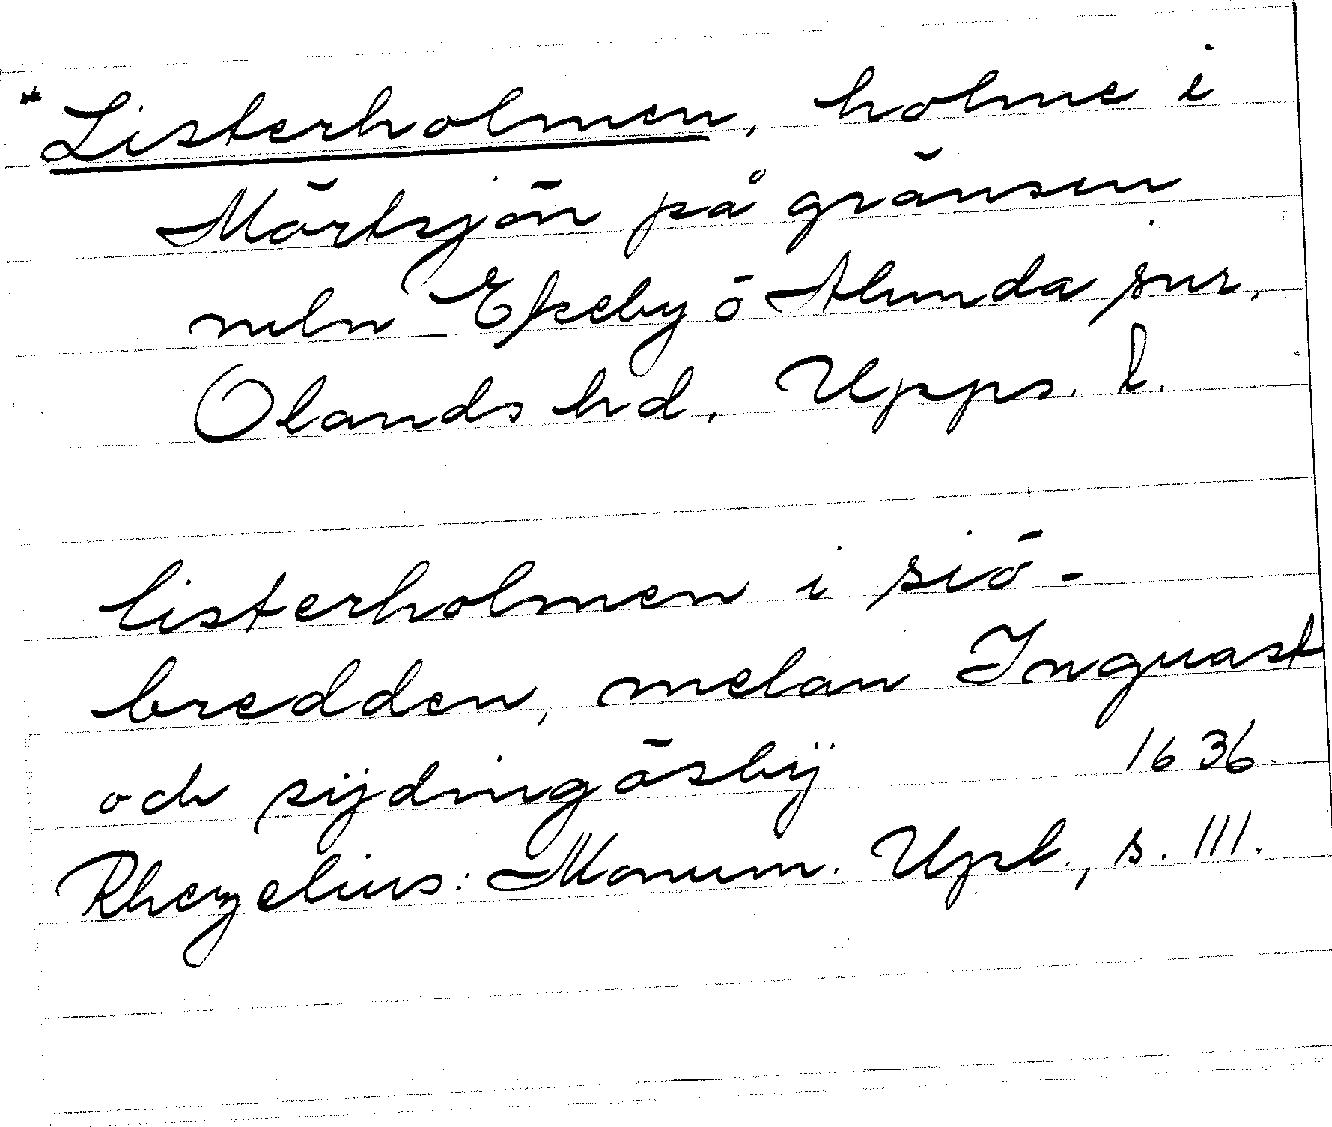 *Listerholmen, holme i
Mörtsjön på gränsen
meln Ekeby o Alunda snr,
Olands hd, Upps. l.
listerholmen i siö-
bredden, melan Inguast
och sijdingösbÿ 1636
Rhezelius: Monum. Upl., s. 111.